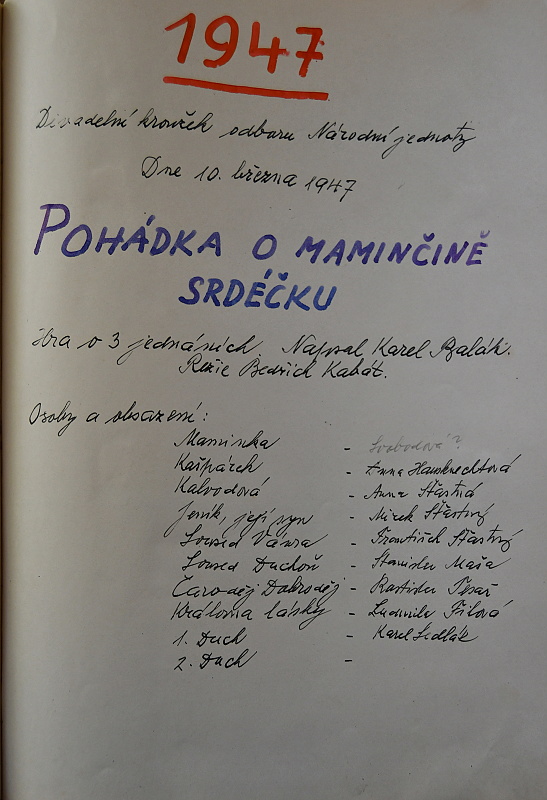 1947
Divadelní kroužek odboru Národní jednoty
Dne 10. března 1947
POHÁDKA O MAMINČINĚ
SRDÉČKU
Hra o 3 jednáních Napsal Karel
Režie Bedřich Kabát.
Osoby a obsazení:
Maminka - Svobodová?
Kašpárek - Anna Hausknechtová
Kalvodová - Anna Šťastná
Jeník, její syn - Mirek Šťastný
Soused Vávra - František Šťastný
Soused Duchoň - Stanislav Maša
Čaroděj Dobroděj - Rastislav Tesař
Královna lásky - Ludmila Fílová
1. Duch - Karel Sedlák
2. Duch -